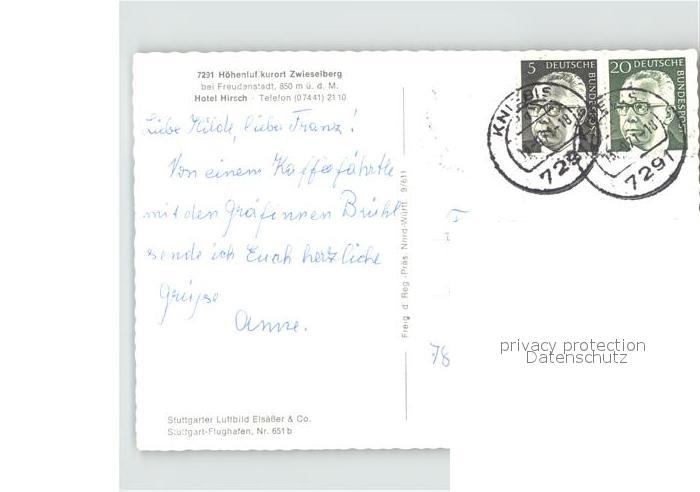 7291 Höhenluftkurort Zwieselberg
bei Freudenstadt, 850 m ü. d. M.
Hotel Hirsch · Telefon (07441) 2110
Liebe Hilde, lieber Franz!
Von einem Kaffeefährtle
mit den Gräfinnen Brühl
sende ich Euch herzliche
Grüsse
Anne.
Stuttgarter Luftbild Elsäßer & Co.
Stuttgart-Flughafen, Nr. 651b
Freig. d. Reg.-Präs. Nord-Württ. 9/611
5 DEUTSCHE BUNDESPOST
20 DEUTSCHE BUNDESPOST
KNIEBIS
7291
78
privacy protection
Datenschutz